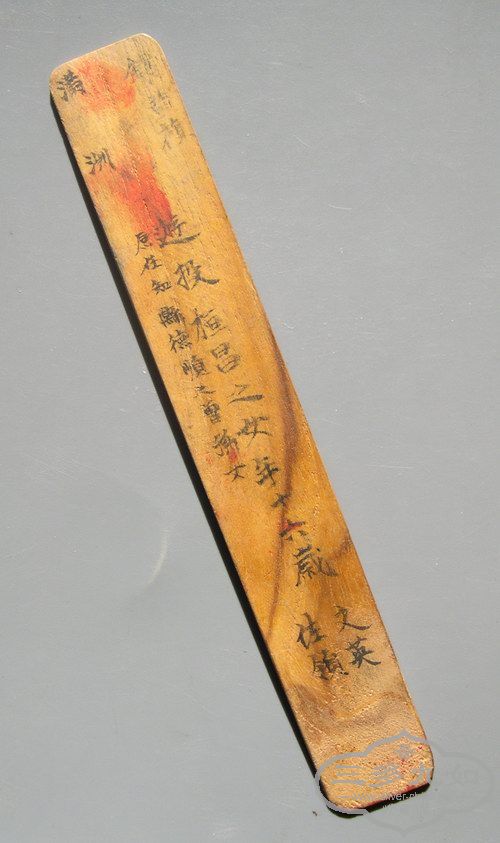 鑲藍旗
滿洲
遊投桓昌之女年十六歲
原任知縣德順之曾孫女
文英
佐領